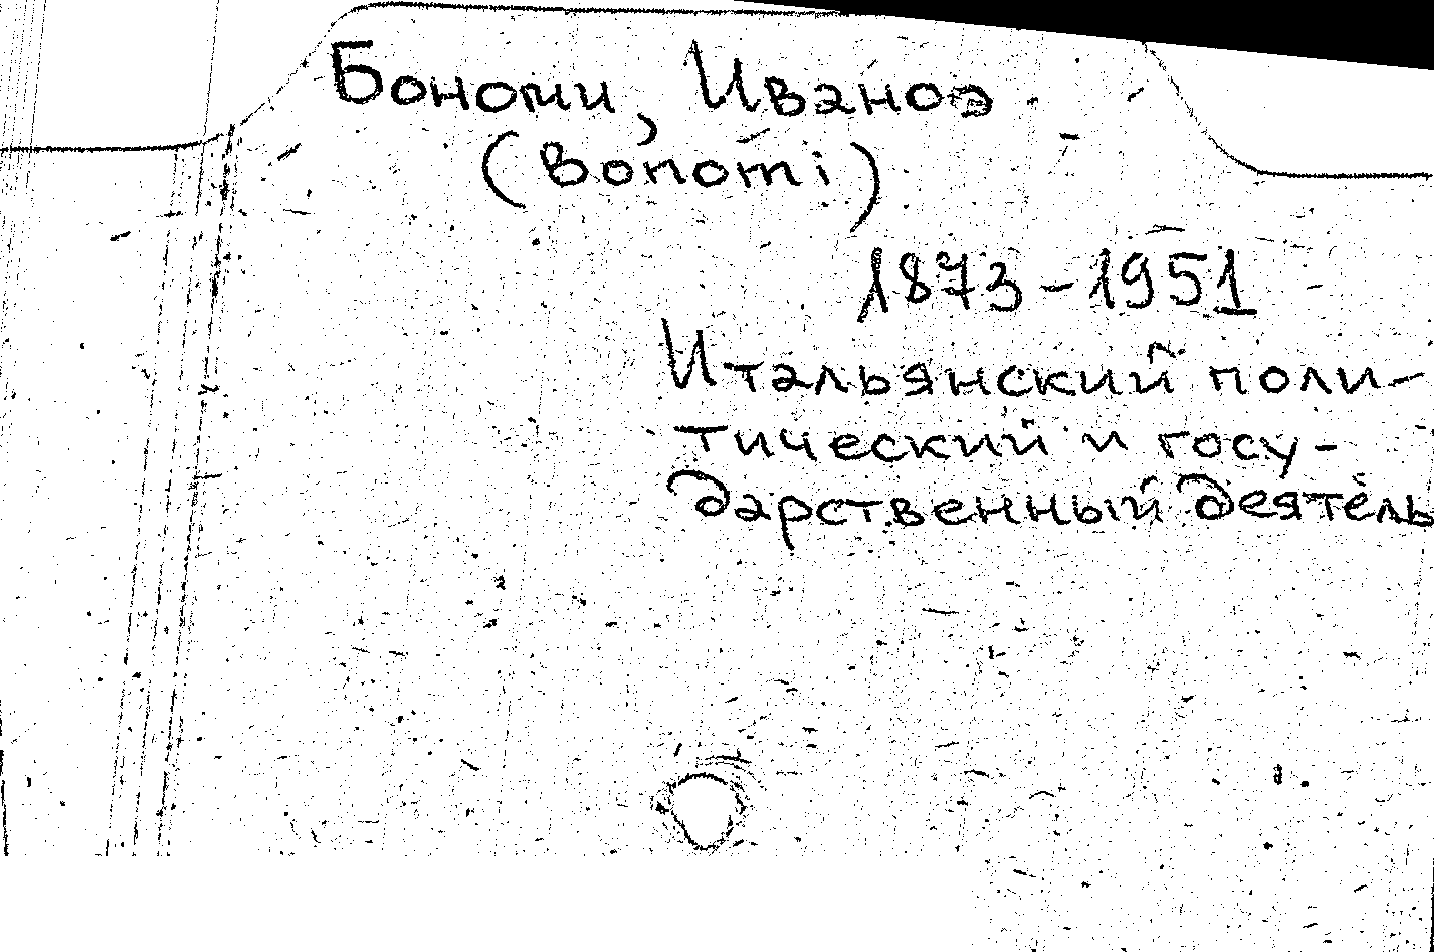 Бономи, Иваноэ
(Bonomi)
1873-1951
Итальянский поли-
тический и госу-
дарственный деятель